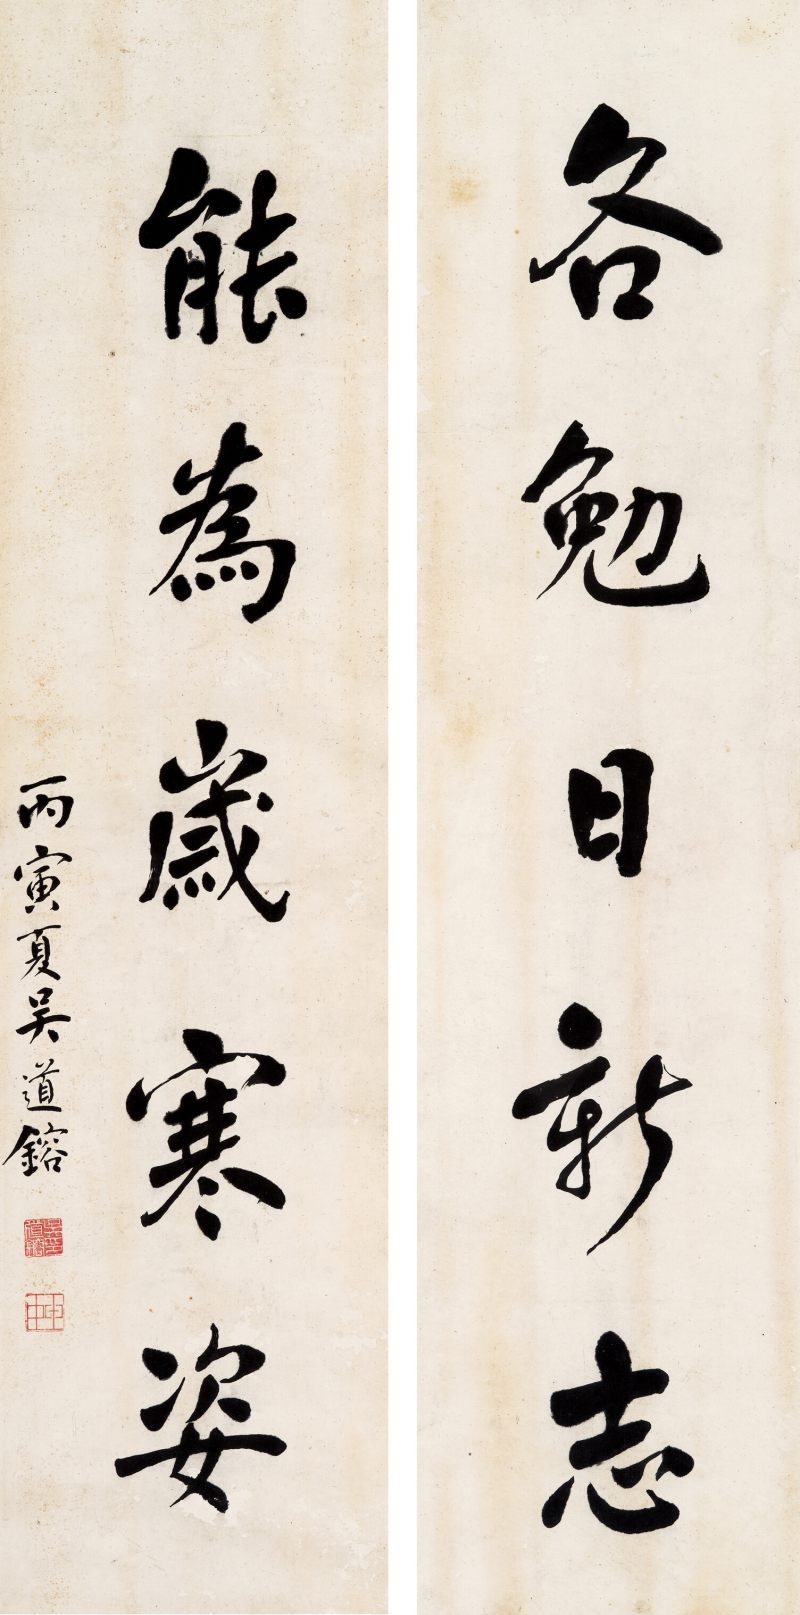 各勉日新志
能為歲寒姿
丙寅夏吳道鎔